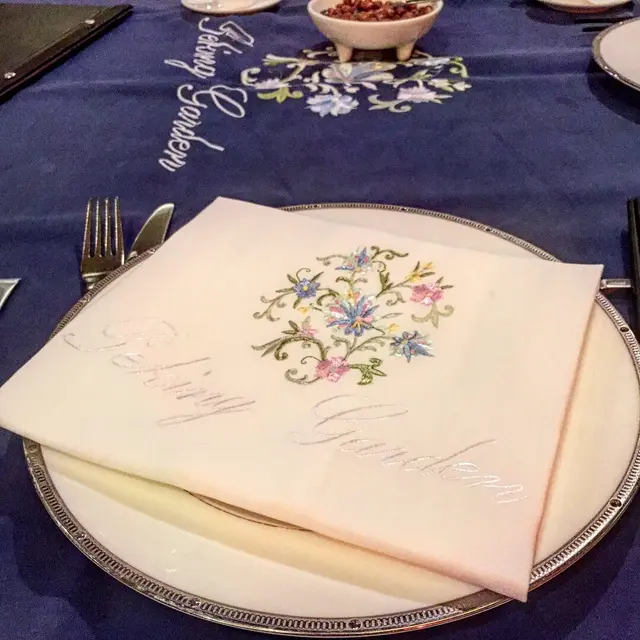 Peking Garden
Peking Garden